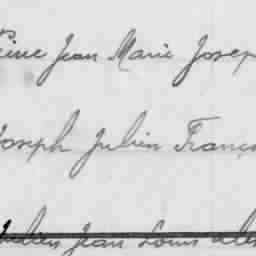 Pierre Jean Marie Josep
Joseph Julien Franç
Julien Jean Louis ale